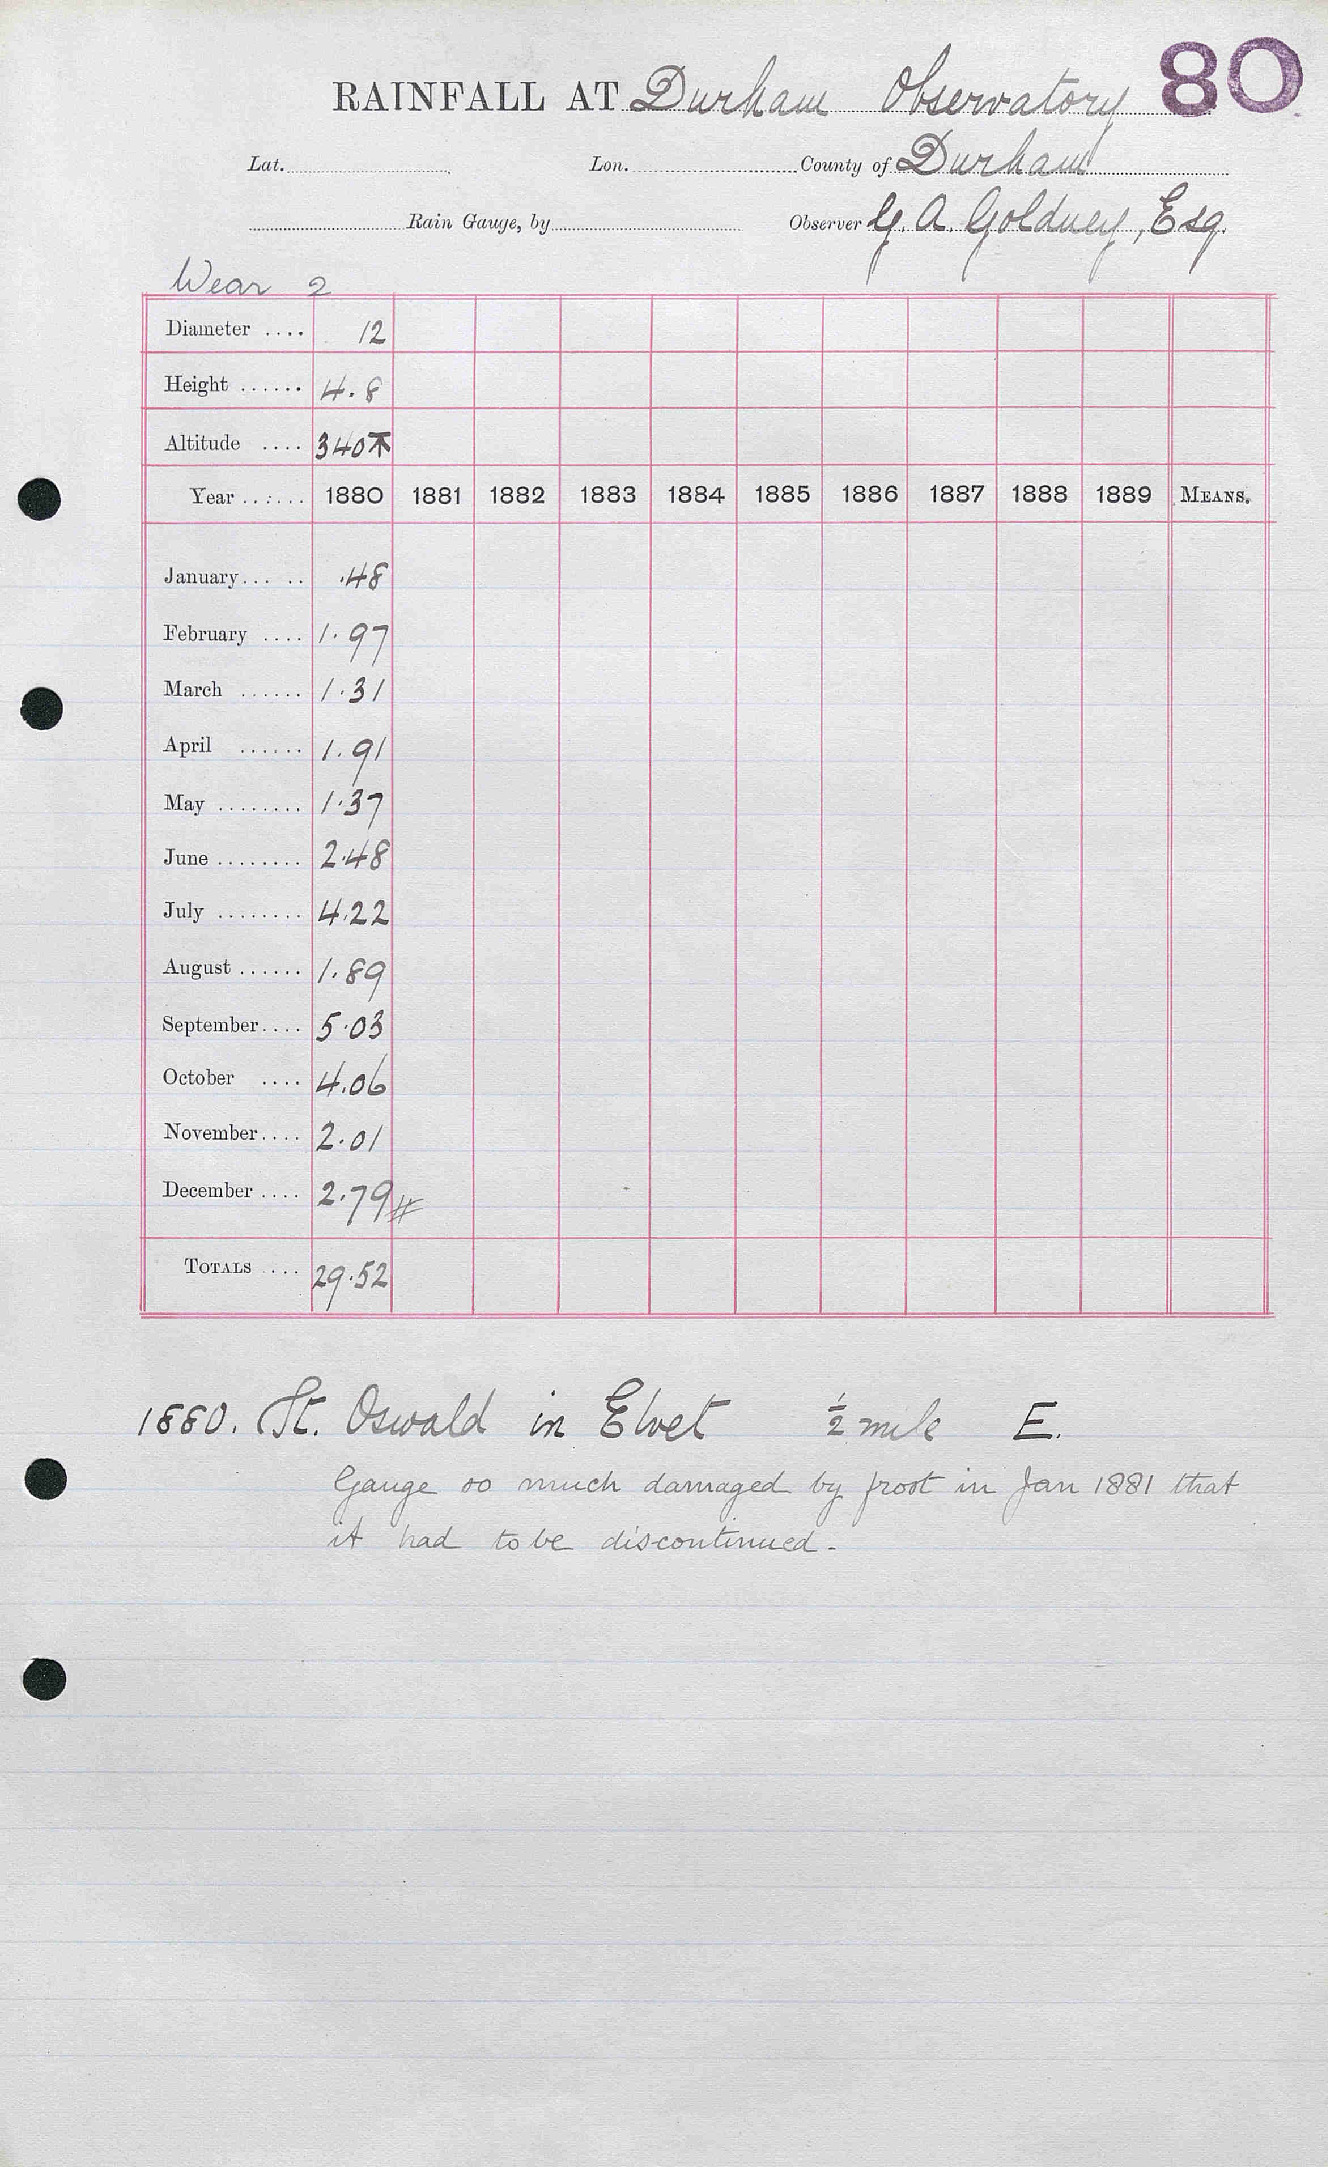 80
RAINFALL AT Durham Observatory
Lat. Lon. County of Durham
Rain Gauge, by Observer G. A. Goldney, Esq.
Wear 2
Diameter .... 12
Height ...... 4.8
Altitude .... 340
Year ...... 1880 1881 1882 1883 1884 1885 1886 1887 1888 1889 MEANS.
January ..... .48
February .... 1.97
March ...... 1.31
April ...... 1.91
May ........ 1.37
June ........ 2.48
July ........ 4.22
August ...... 1.89
September .... 5.03
October .... 4.06
November .... 2.01
December .... 2.79 #
TOTALS .... 29.52
1880. St. Oswald in Elvet ½ mile E.
Gauge so much damaged by frost in Jan 1881 that
it had to be discontinued.